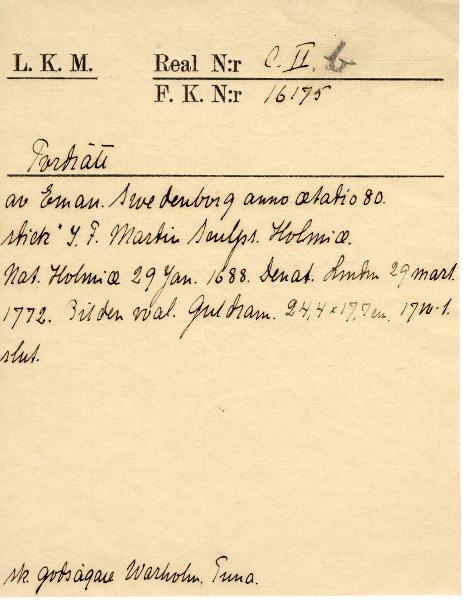 L. K. M. Real N:r C. II. b
F. K. N:r 16175
Porträtt
av Eman. Swedenborg anno ætatio 80.
stick" J. F. Martin Sculps. Holmiæ.
Nat. Holmiæ 29 Jan. 1688. Denat. London 29 mart.
1772. Bilden oval. Guldram. 24,4 x 17,7 cm. 1700-t.
slut.
sk. godsägare Warholm, Tuna.